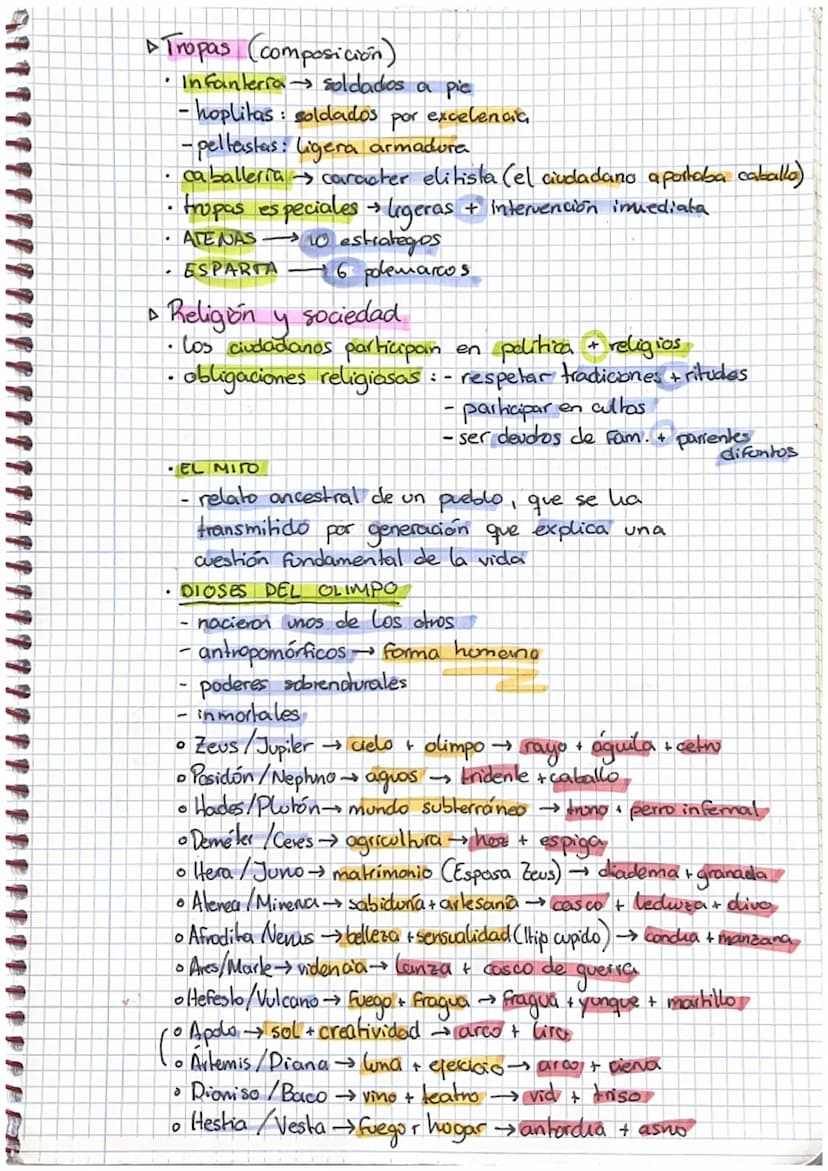 ▷ Tropas (composición)
· Infantería → soldados a pie
- hoplitas : soldados por excelencia
- peltastas : ligera armadura
· caballería → caracter elitista (el ciudadano aportaba caballo)
· tropas especiales → ligeras + intervención inmediata
· ATENAS → 10 estrategos
· ESPARTA → 6 polemarcos
▷ Religión y sociedad
· los ciudadanos participan en política + religios
· obligaciones religiosas : - respetar tradiciones + ritudes
- participar en cultos
- ser deudos de Fam. + parientes
difuntos
· EL MITO
- relato ancestral de un pueblo, que se ha
transmitido por generación que explica una
cuestión fundamental de la vida
· DIOSES DEL OLIMPO
- nacieron unos de los otros
- antropomórficos → forma humana
- poderes sobrenaturales
- inmortales
o Zeus/Jupiter → cielo + olimpo → rayo + águila + cetro
o Posidón/Neptuno → aguas → tridente + caballo
o Hades/Plutón → mundo subterráneo → trono + perro infernal
o Deméter/Ceres → agricultura → hoz + espiga
o Hera/Juno → matrimonio (Esposa Zeus) → diadema + granada
o Atenea/Minerva → sabiduría + artesanía → casco + lechuza + olivo
o Afrodita/Venus → belleza + sensualidad (Hijo cupido) → concha + manzana
o Ares/Marte → videncia → lanza + casco de guerra
o Hefesto/Vulcano → fuego + fragua → fragua + yunque + martillo
o Apolo → sol + creatividad → arco + lira
o Ártemis/Diana → luna + ejercicio → arco + cierva
o Dioniso/Baco → vino + teatro → vid + tirso
o Hestia/Vesta → fuego + hogar → antorcha + asno